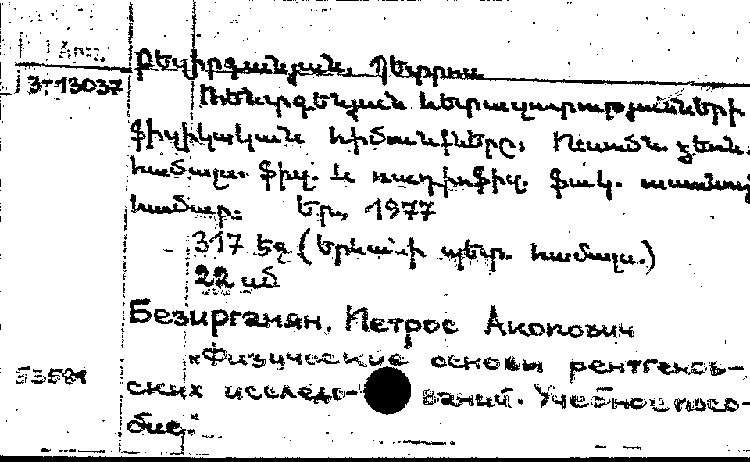 1 Հրդ.
Բեզիրգանյան, Պետրոս
37-13037
Ռենտգենյան հետազոտությունների
ֆիզիկական հիմունքները. Ուսումն. ձեռն.
համալս. ֆիզ. և ռադիոֆիզ. ֆակ. ուսանող
համար։ Եր., 1977
317 էջ (Երևանի պետ. համալս.)
22 սմ
Безирганян, Петрос Акопович
«Физические основы рентгенов-
53581
ских исследо- ваний. Учебное посо-
бие."